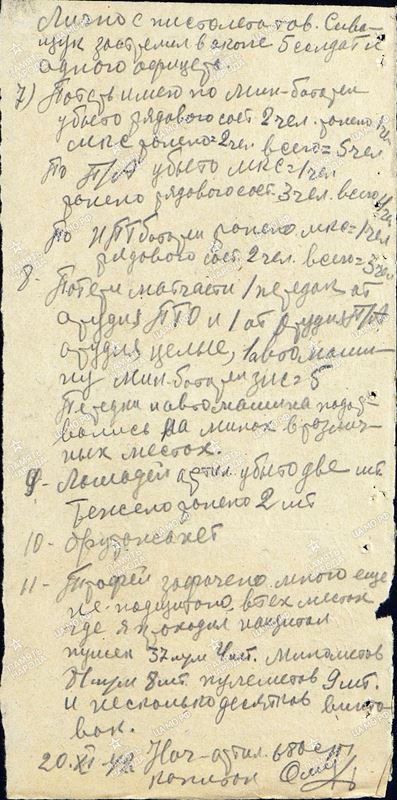 Лично с пистолета тов. Сива-
щук застрелил в окопе 5 солдат и
одного офицера.
7) Потерь имею по Мин-батареи
убито рядового сост 2 чел. ранено
МКС ранено=2 чел всего= 5 чел
По П/А убыто МКС=1 чел
ранено рядового сост. 3 чел. всего 4 чел
По ИПТ батареи ранено МКС=1 чел
рядового сост. 2 чел. всего= 3 чел
8. Потери матчасти 1 передок от
орудия ПТО и 1 от орудия П/А
орудия целые, 1 автомаши-
ну Мин-батареи ЗИС=5
Передки и автомашина подор-
вались на минах в различ-
ных местах.
9- Лошадей артил. убыто две шт
тяжело ранено 2 шт
10-
11- Трофей захвачено много еще
не подщитано в тех местах
где я проходил насчитал
пушек 37 м/м 4 шт. Минометов
81 м/м 8 шт пулеметов 9 шт.
и несколько десятков винто-
вок.
20.XI-42 Нач-артил.
капитан